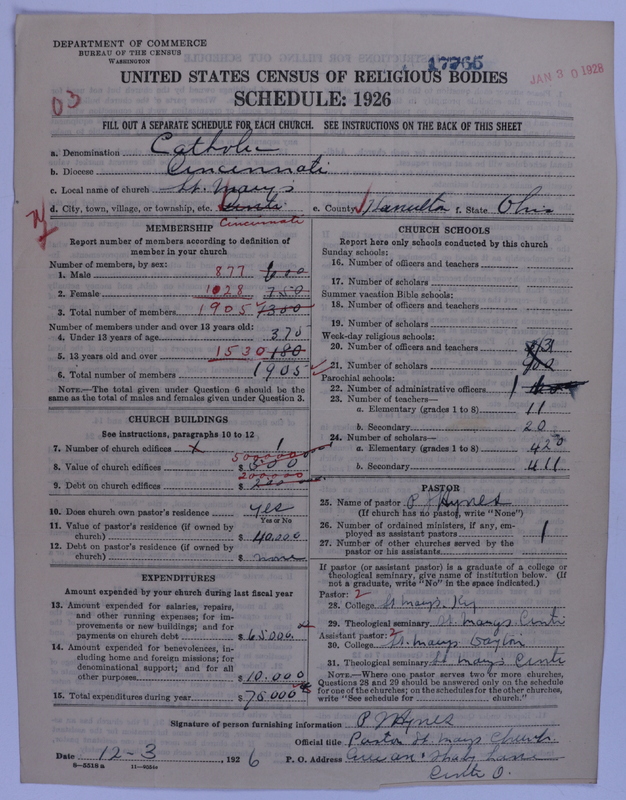 DEPARTMENT OF COMMERCE
BUREAU OF THE CENSUS
WASHINGTON
17765
JAN 30 1928
UNITED STATES CENSUS OF RELIGIOUS BODIES
SCHEDULE: 1926
03
FILL OUT A SEPARATE SCHEDULE FOR EACH CHURCH. SEE INSTRUCTIONS ON THE BACK OF THIS SHEET
a. Denomination Catholic
b. Diocese Cincinnati
c. Local name of church St. Mary's
d. City, town, village, or township, etc. Cinti e. County Hamilton f. State Ohio
Cincinnati
MEMBERSHIP
Report number of members according to definition of
member in your church
Number of members, by sex:
1. Male 877 600
2. Female 1028 750
3. Total number of members 1905 1300
Number of members under and over 13 years old:
4. Under 13 years of age 375
5. 13 years old and over 1530 180
6. Total number of members 1905
NOTE.—The total given under Question 6 should be the
same as the total of males and females given under Question 3.
CHURCH BUILDINGS
See instructions, paragraphs 10 to 12
7. Number of church edifices 1
8. Value of church edifices $ 500000
9. Debt on church edifices $ 200000
10. Does church own pastor's residence yes
Yes or No
11. Value of pastor's residence (if owned by
church) $ 40,000
12. Debt on pastor's residence (if owned by
church) $ none
EXPENDITURES
Amount expended by your church during last fiscal year
13. Amount expended for salaries, repairs,
and other running expenses; for im-
provements or new buildings; and for
payments on church debt $ 65000
14. Amount expended for benevolences, in-
cluding home and foreign missions; for
denominational support; and for all
other purposes $ 10.000
15. Total expenditures during year $ 75000
CHURCH SCHOOLS
Report here only schools conducted by this church
Sunday schools:
16. Number of officers and teachers
17. Number of scholars
Summer vacation Bible schools:
18. Number of officers and teachers
19. Number of scholars
Week-day religious schools:
20. Number of officers and teachers
21. Number of scholars
Parochial schools:
22. Number of administrative officers 1
23. Number of teachers—
a. Elementary (grades 1 to 8) 11
b. Secondary 20
24. Number of scholars—
a. Elementary (grades 1 to 8) 420
b. Secondary 411
PASTOR
25. Name of pastor P J Hynes
(If church has no pastor, write "None")
26. Number of ordained ministers, if any, em-
ployed as assistant pastors 1
27. Number of other churches served by the
pastor or his assistants
If pastor (or assistant pastor) is a graduate of a college or
theological seminary, give name of institution below. (If
not a graduate, write "No" in the space indicated.)
Pastor: 2
28. College St Marys. Ky
29. Theological seminary St. Marys Cinti
Assistant pastor: 2
30. College St. Marys Dayton
31. Theological seminary St Marys Cinti
NOTE.—Where one pastor serves two or more churches,
Questions 28 and 29 should be answered only on the schedule
for one of the churches; on the schedules for the other churches,
write "See schedule for church."
Signature of person furnishing information P J Hynes
Official title Pastor St. Marys Church
Date 12-3, 1926 P. O. Address
Cinti O.
8—5518a 11—9054a